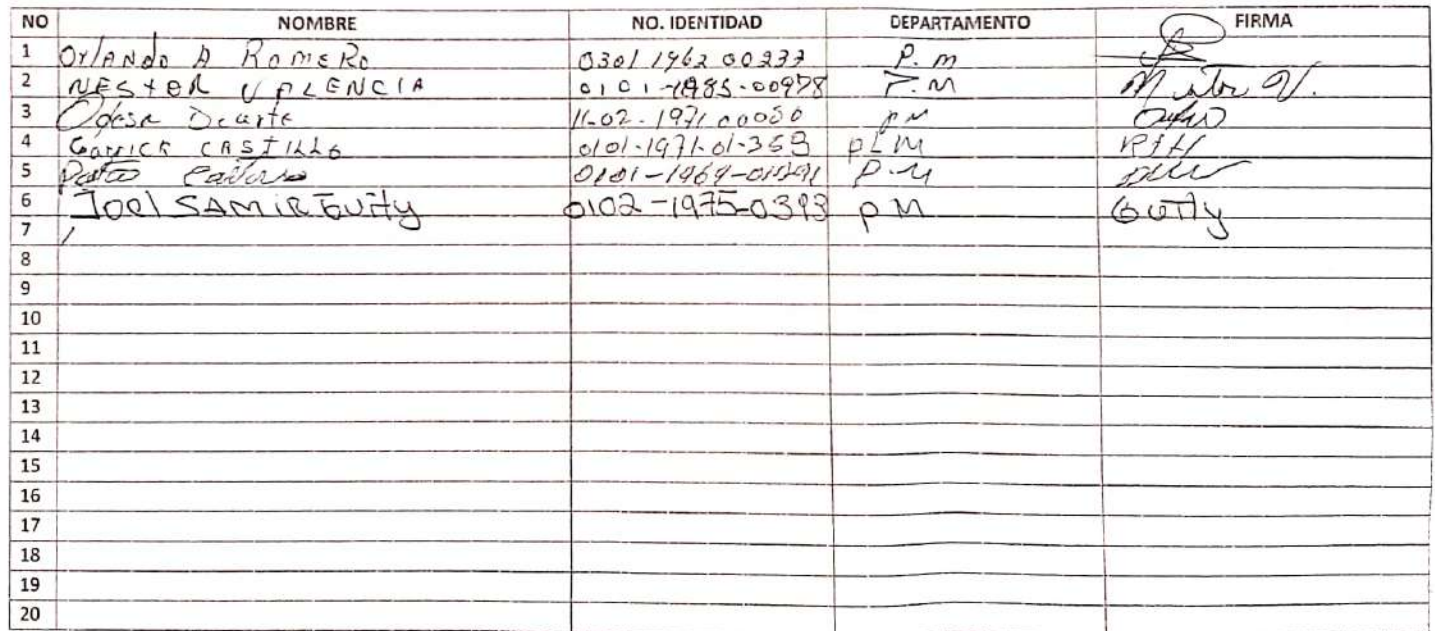 NO NOMBRE NO. IDENTIDAD DEPARTAMENTO FIRMA
1 Orlando A Romero 0301 1962 00237 P. m
2 NESTER VALENCIA 0101-1985-00978 P.M
3 Odesa Duarte 11-02-1971 00050 PM
4 Garrick CASTILLO 0101-1971-01-353 pLM
5 0101-1969- P.M
6 Joel SAMIR GUITY 0102-1975-0393 PM GUITy
7
8
9
10
11
12
13
14
15
16
17
18
19
20